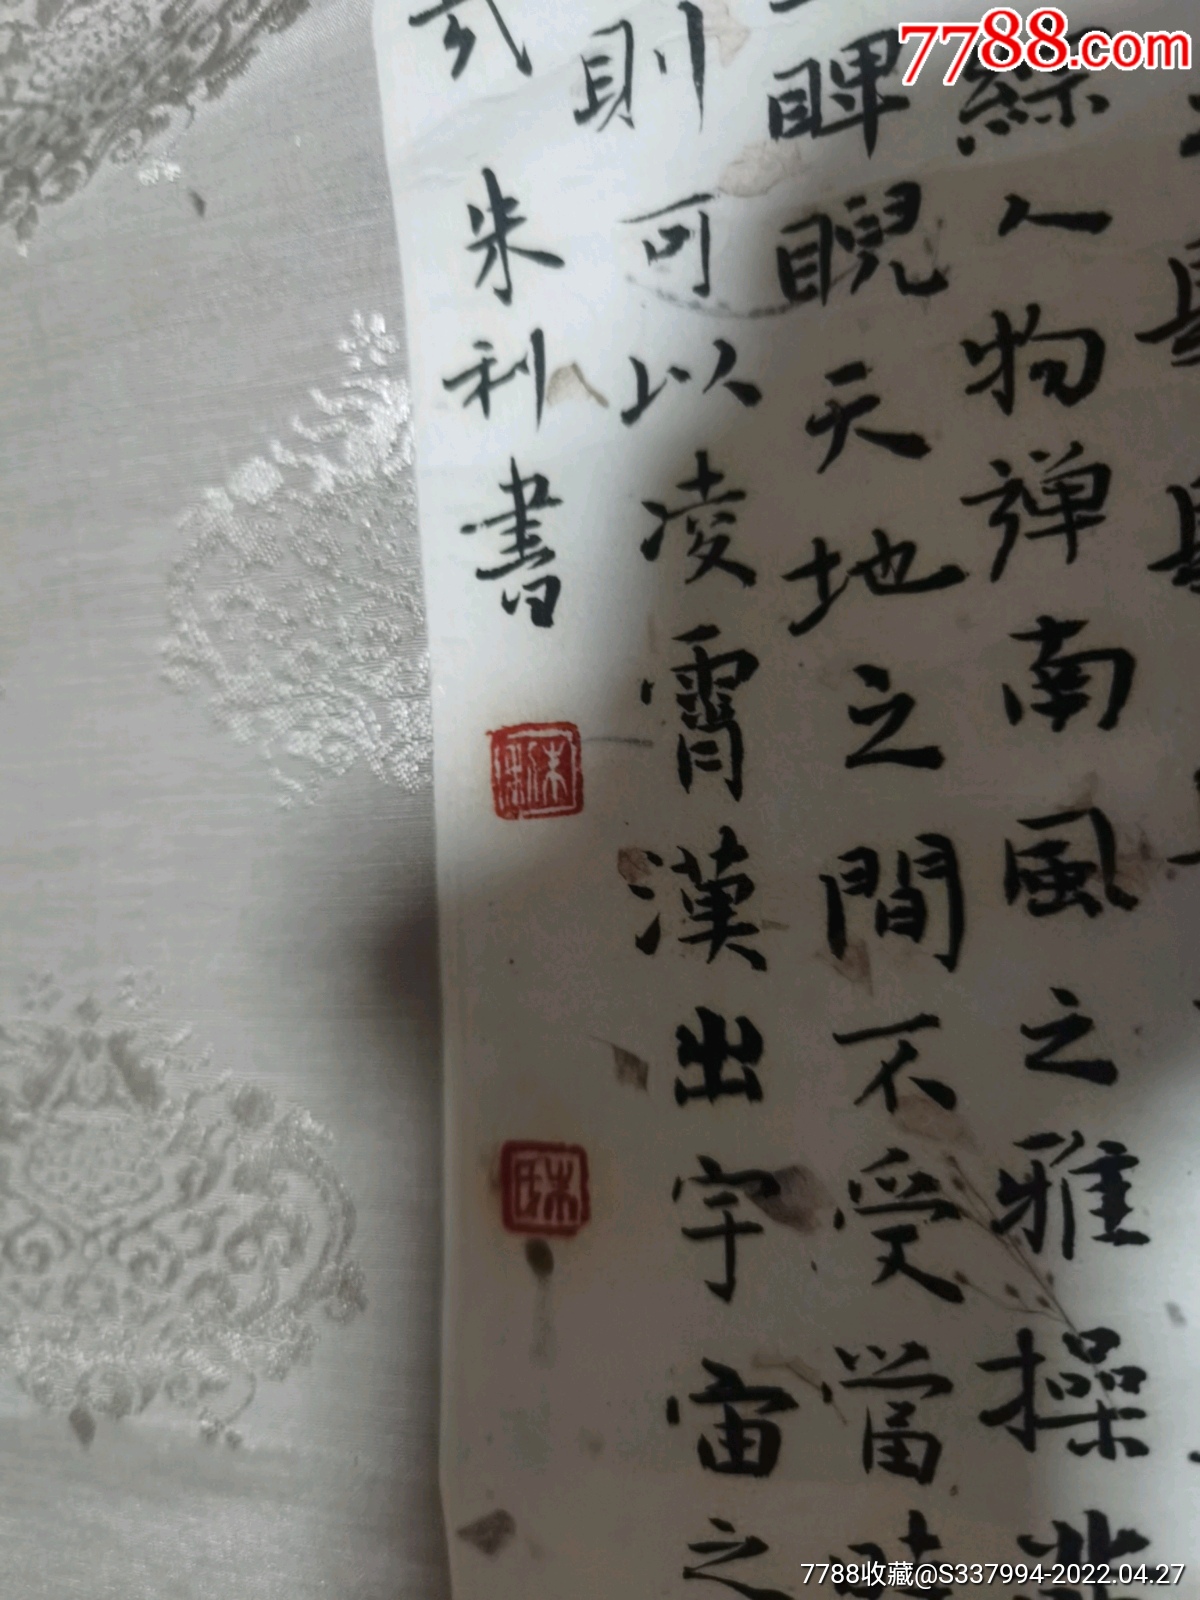 綜人物彈南風之雅操
睥睨天地之間不受當時
則可以凌霄漢出宇宙之
朱利書
7788.com
7788收藏@S337994-2022.04.27